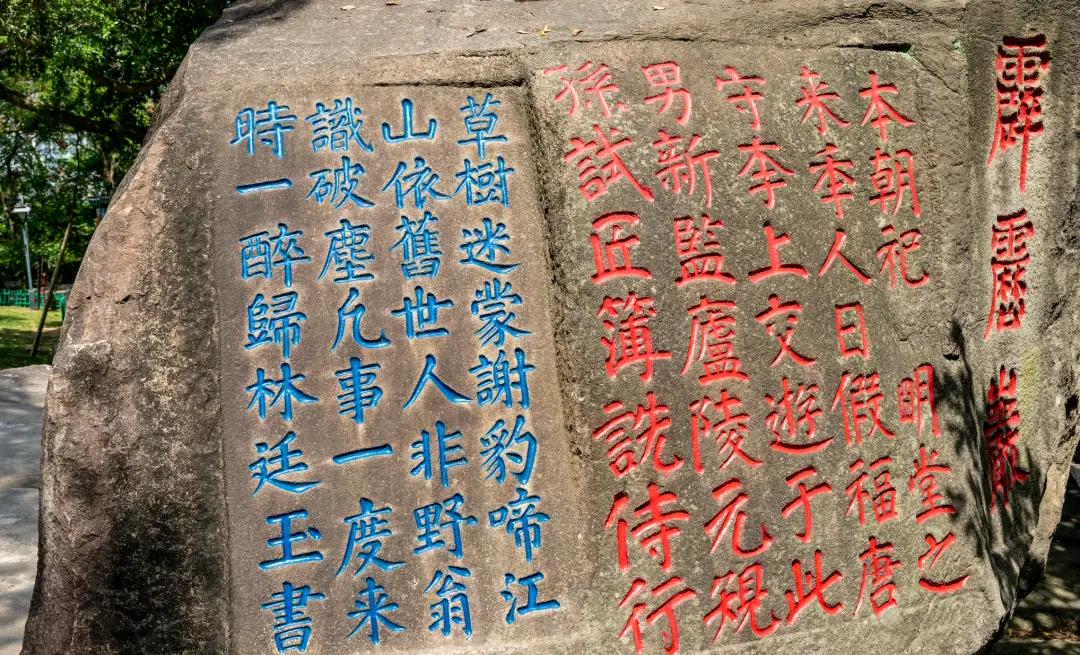 霹靂巖
本朝祀明堂之
来秊人日假福唐
守李上文遊于此
男新監廬陵元規
孫試匠簿詵侍行
草樹迷蒙謝豹啼江
山依舊世人非野翁
識破塵凢事一度来
時一醉歸林廷玉書